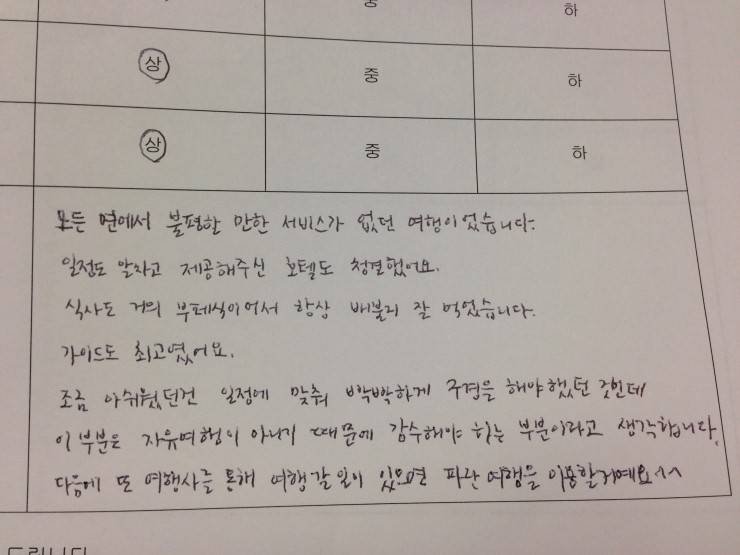 중 하
상 중 하
상 중 하
모든 면에서 불평할 만한 서비스가 없던 여행이었습니다.
일정도 알차고 제공해주신 호텔도 청결했어요.
식사도 거의 부페식이어서 항상 배불리 잘 먹었습니다.
가이드도 최고였어요.
조금 아쉬웠던건 일정에 맞춰 빡빡하게 구경을 해야했던 것인데
이 부분은 자유여행이 아니기 때문에 감수해야 하는 부분이라고 생각합니다.
다음에 또 여행사를 통해 여행갈 일이 있으면 파란 여행을 이용할거예요^^
드립니다